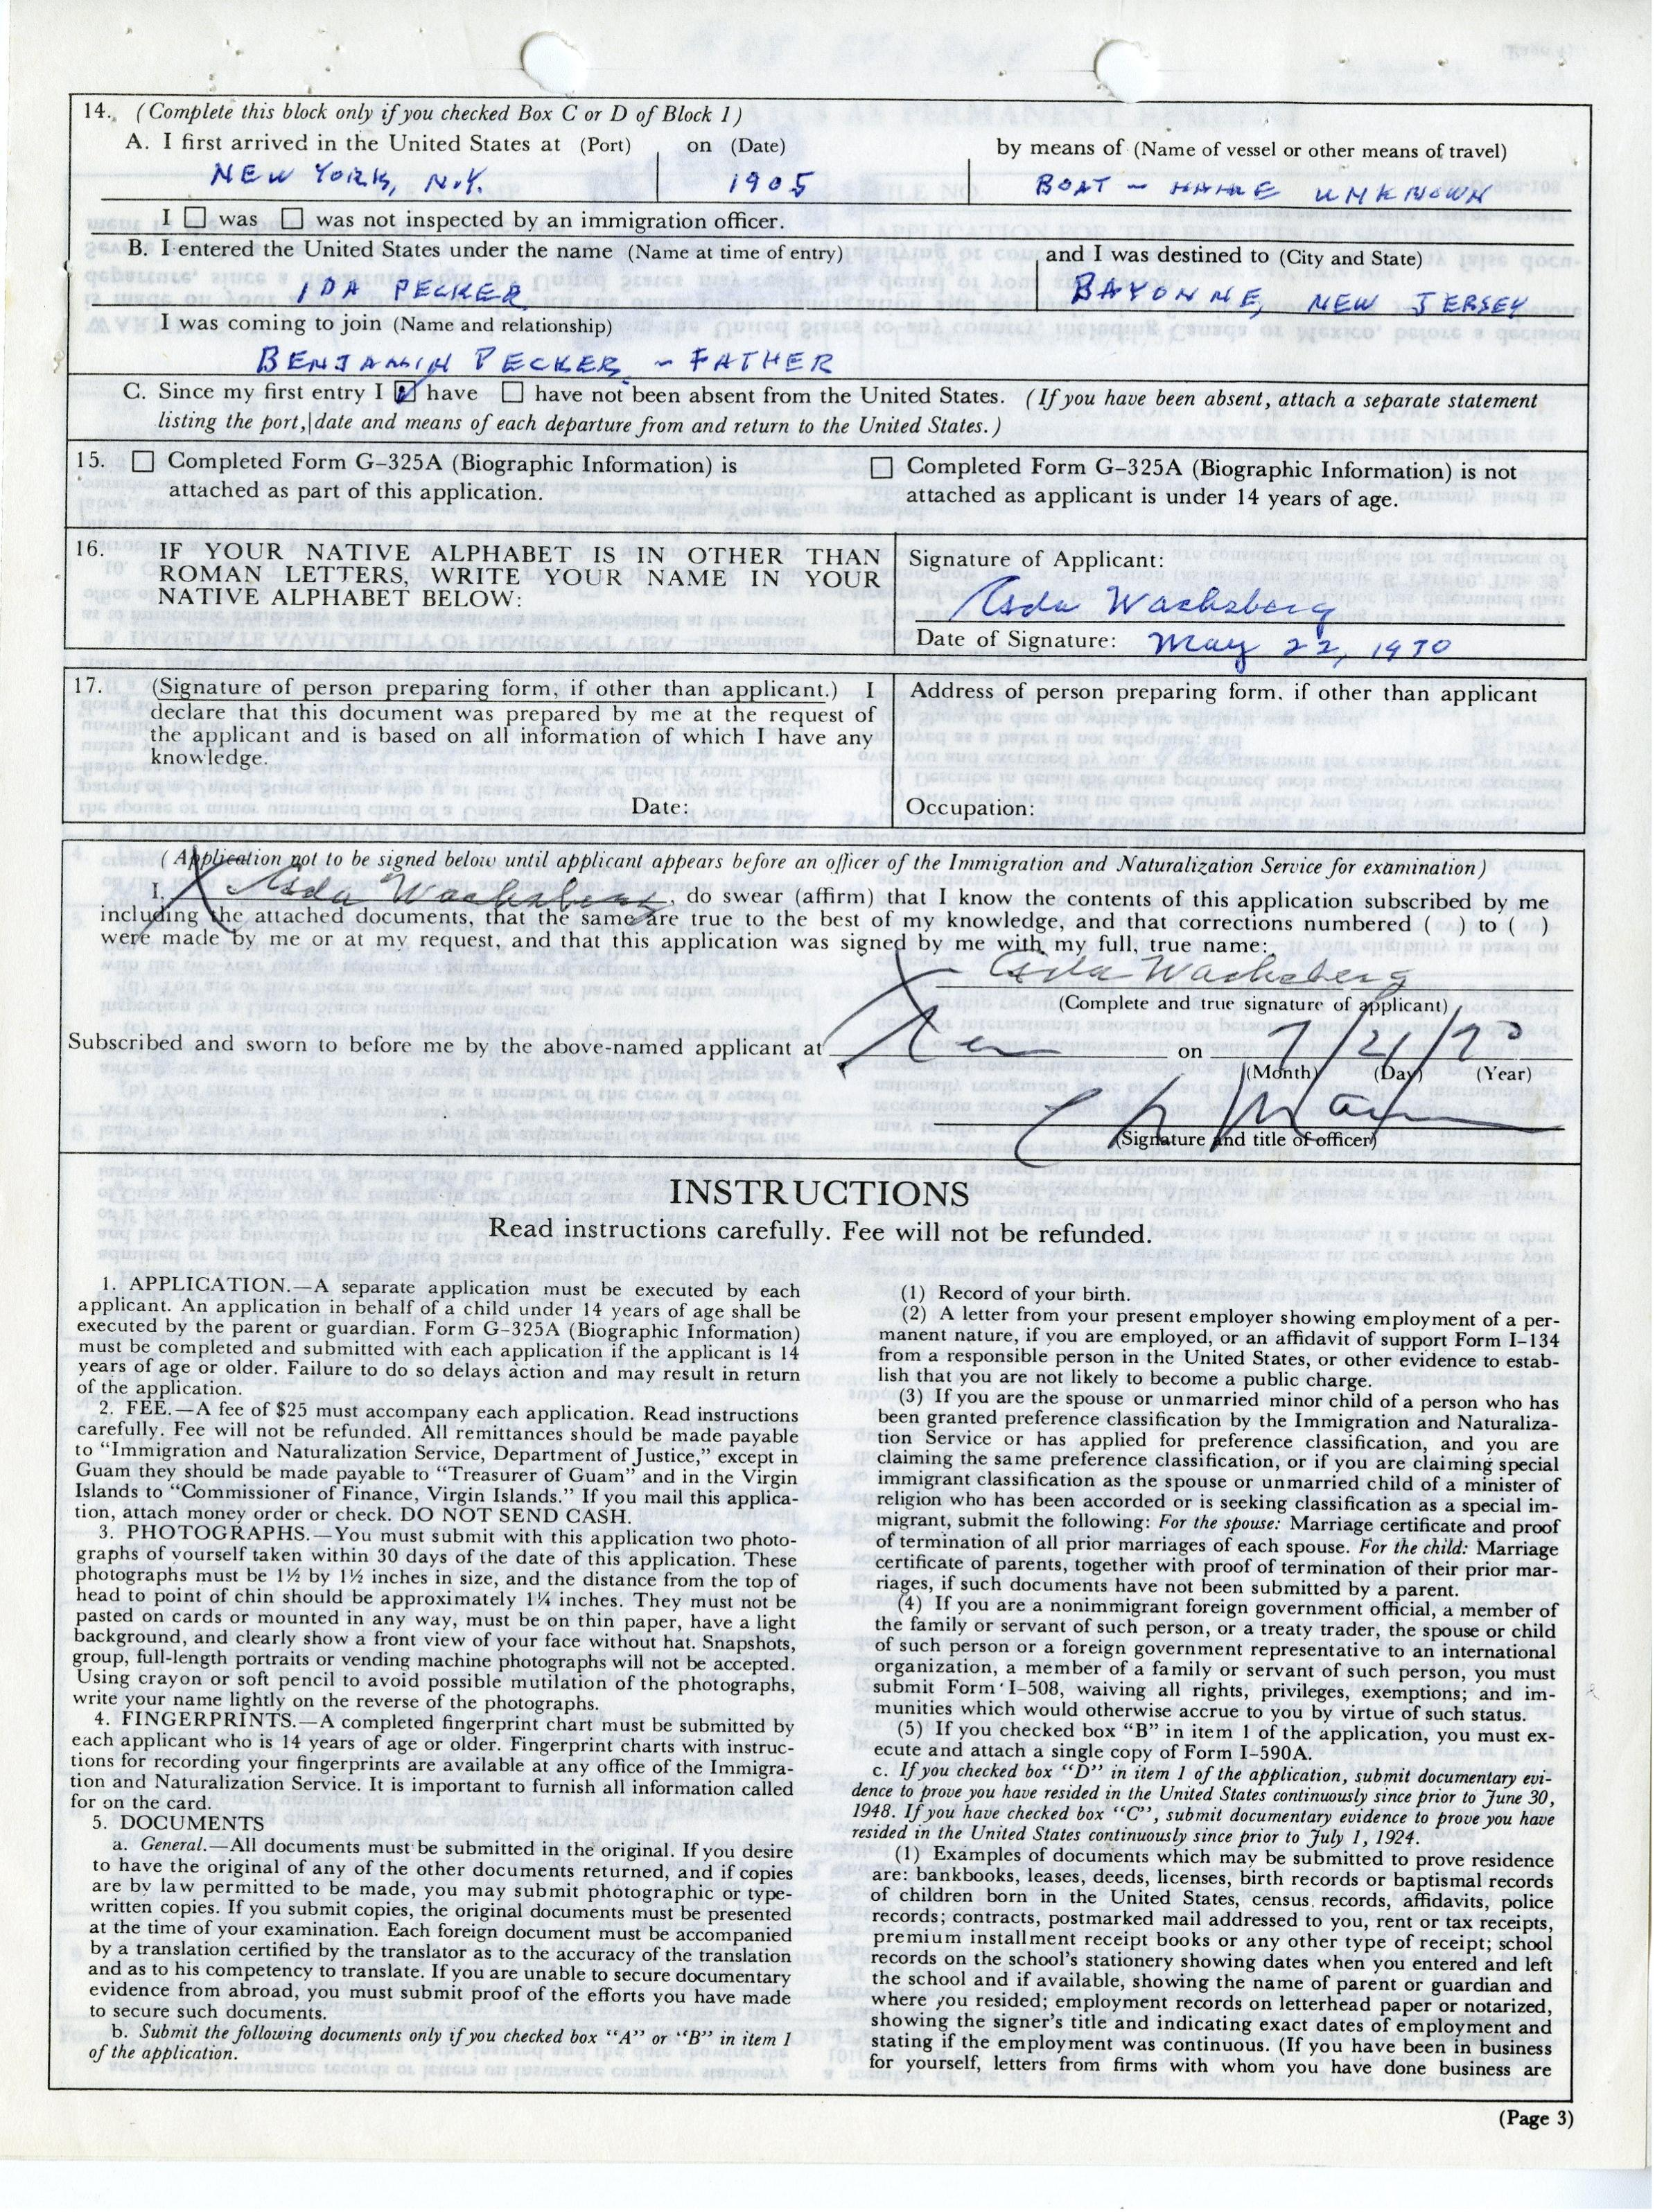 14. (Complete this block only if you checked Box C or D of Block 1)
A. I first arrived in the United States at (Port) on (Date) by means of (Name of vessel or other means of travel)
NEW YORK, N.Y. 1905 BOAT - NAME UNKNOWN
I ☐ was ☐ was not inspected by an immigration officer.
B. I entered the United States under the name (Name at time of entry) and I was destined to (City and State)
IDA PECKER BAYONNE, NEW JERSEY
I was coming to join (Name and relationship)
BENJAMIN PECKER - FATHER
C. Since my first entry I ☑ have ☐ have not been absent from the United States. (If you have been absent, attach a separate statement
listing the port, date and means of each departure from and return to the United States.)
15. ☐ Completed Form G-325A (Biographic Information) is
attached as part of this application.
☐ Completed Form G-325A (Biographic Information) is not
attached as applicant is under 14 years of age.
16. IF YOUR NATIVE ALPHABET IS IN OTHER THAN
ROMAN LETTERS, WRITE YOUR NAME IN YOUR
NATIVE ALPHABET BELOW:
Signature of Applicant:
Ida Wachsberg
Date of Signature: May 22, 1970
17. (Signature of person preparing form, if other than applicant.) I
declare that this document was prepared by me at the request of
the applicant and is based on all information of which I have any
knowledge.
Date:
Address of person preparing form. if other than applicant
Occupation:
(Application not to be signed below until applicant appears before an officer of the Immigration and Naturalization Service for examination)
I, Ida Wachsberg, do swear (affirm) that I know the contents of this application subscribed by me
including the attached documents, that the same are true to the best of my knowledge, and that corrections numbered ( ) to ( )
were made by me or at my request, and that this application was signed by me with my full, true name:
Ida Wachsberg
(Complete and true signature of applicant)
Subscribed and sworn to before me by the above-named applicant at on 7/21/70
(Month) (Day) (Year)
(Signature and title of officer)
INSTRUCTIONS
Read instructions carefully. Fee will not be refunded.
1. APPLICATION.—A separate application must be executed by each
applicant. An application in behalf of a child under 14 years of age shall be
executed by the parent or guardian. Form G-325A (Biographic Information)
must be completed and submitted with each application if the applicant is 14
years of age or older. Failure to do so delays action and may result in return
of the application.
2. FEE.—A fee of $25 must accompany each application. Read instructions
carefully. Fee will not be refunded. All remittances should be made payable
to "Immigration and Naturalization Service, Department of Justice," except in
Guam they should be made payable to "Treasurer of Guam" and in the Virgin
Islands to "Commissioner of Finance, Virgin Islands." If you mail this applica-
tion, attach money order or check. DO NOT SEND CASH.
3. PHOTOGRAPHS.—You must submit with this application two photo-
graphs of yourself taken within 30 days of the date of this application. These
photographs must be 1½ by 1½ inches in size, and the distance from the top of
head to point of chin should be approximately 1¼ inches. They must not be
pasted on cards or mounted in any way, must be on thin paper, have a light
background, and clearly show a front view of your face without hat. Snapshots,
group, full-length portraits or vending machine photographs will not be accepted.
Using crayon or soft pencil to avoid possible mutilation of the photographs,
write your name lightly on the reverse of the photographs.
4. FINGERPRINTS.—A completed fingerprint chart must be submitted by
each applicant who is 14 years of age or older. Fingerprint charts with instruc-
tions for recording your fingerprints are available at any office of the Immigra-
tion and Naturalization Service. It is important to furnish all information called
for on the card.
5. DOCUMENTS
a. General.—All documents must be submitted in the original. If you desire
to have the original of any of the other documents returned, and if copies
are by law permitted to be made, you may submit photographic or type-
written copies. If you submit copies, the original documents must be presented
at the time of your examination. Each foreign document must be accompanied
by a translation certified by the translator as to the accuracy of the translation
and as to his competency to translate. If you are unable to secure documentary
evidence from abroad, you must submit proof of the efforts you have made
to secure such documents.
b. Submit the following documents only if you checked box "A" or "B" in item 1
of the application.
(1) Record of your birth.
(2) A letter from your present employer showing employment of a per-
manent nature, if you are employed, or an affidavit of support Form I-134
from a responsible person in the United States, or other evidence to estab-
lish that you are not likely to become a public charge.
(3) If you are the spouse or unmarried minor child of a person who has
been granted preference classification by the Immigration and Naturaliza-
tion Service or has applied for preference classification, and you are
claiming the same preference classification, or if you are claiming special
immigrant classification as the spouse or unmarried child of a minister of
religion who has been accorded or is seeking classification as a special im-
migrant, submit the following: For the spouse: Marriage certificate and proof
of termination of all prior marriages of each spouse. For the child: Marriage
certificate of parents, together with proof of termination of their prior mar-
riages, if such documents have not been submitted by a parent.
(4) If you are a nonimmigrant foreign government official, a member of
the family or servant of such person, or a treaty trader, the spouse or child
of such person or a foreign government representative to an international
organization, a member of a family or servant of such person, you must
submit Form I-508, waiving all rights, privileges, exemptions; and im-
munities which would otherwise accrue to you by virtue of such status.
(5) If you checked box "B" in item 1 of the application, you must ex-
ecute and attach a single copy of Form I-590A.
c. If you checked box "D" in item 1 of the application, submit documentary evi-
dence to prove you have resided in the United States continuously since prior to June 30,
1948. If you have checked box "C", submit documentary evidence to prove you have
resided in the United States continuously since prior to July 1, 1924.
(1) Examples of documents which may be submitted to prove residence
are: bankbooks, leases, deeds, licenses, birth records or baptismal records
of children born in the United States, census records, affidavits, police
records; contracts, postmarked mail addressed to you, rent or tax receipts,
premium installment receipt books or any other type of receipt; school
records on the school's stationery showing dates when you entered and left
the school and if available, showing the name of parent or guardian and
where you resided; employment records on letterhead paper or notarized,
showing the signer's title and indicating exact dates of employment and
stating if the employment was continuous. (If you have been in business
for yourself, letters from firms with whom you have done business are
(Page 3)